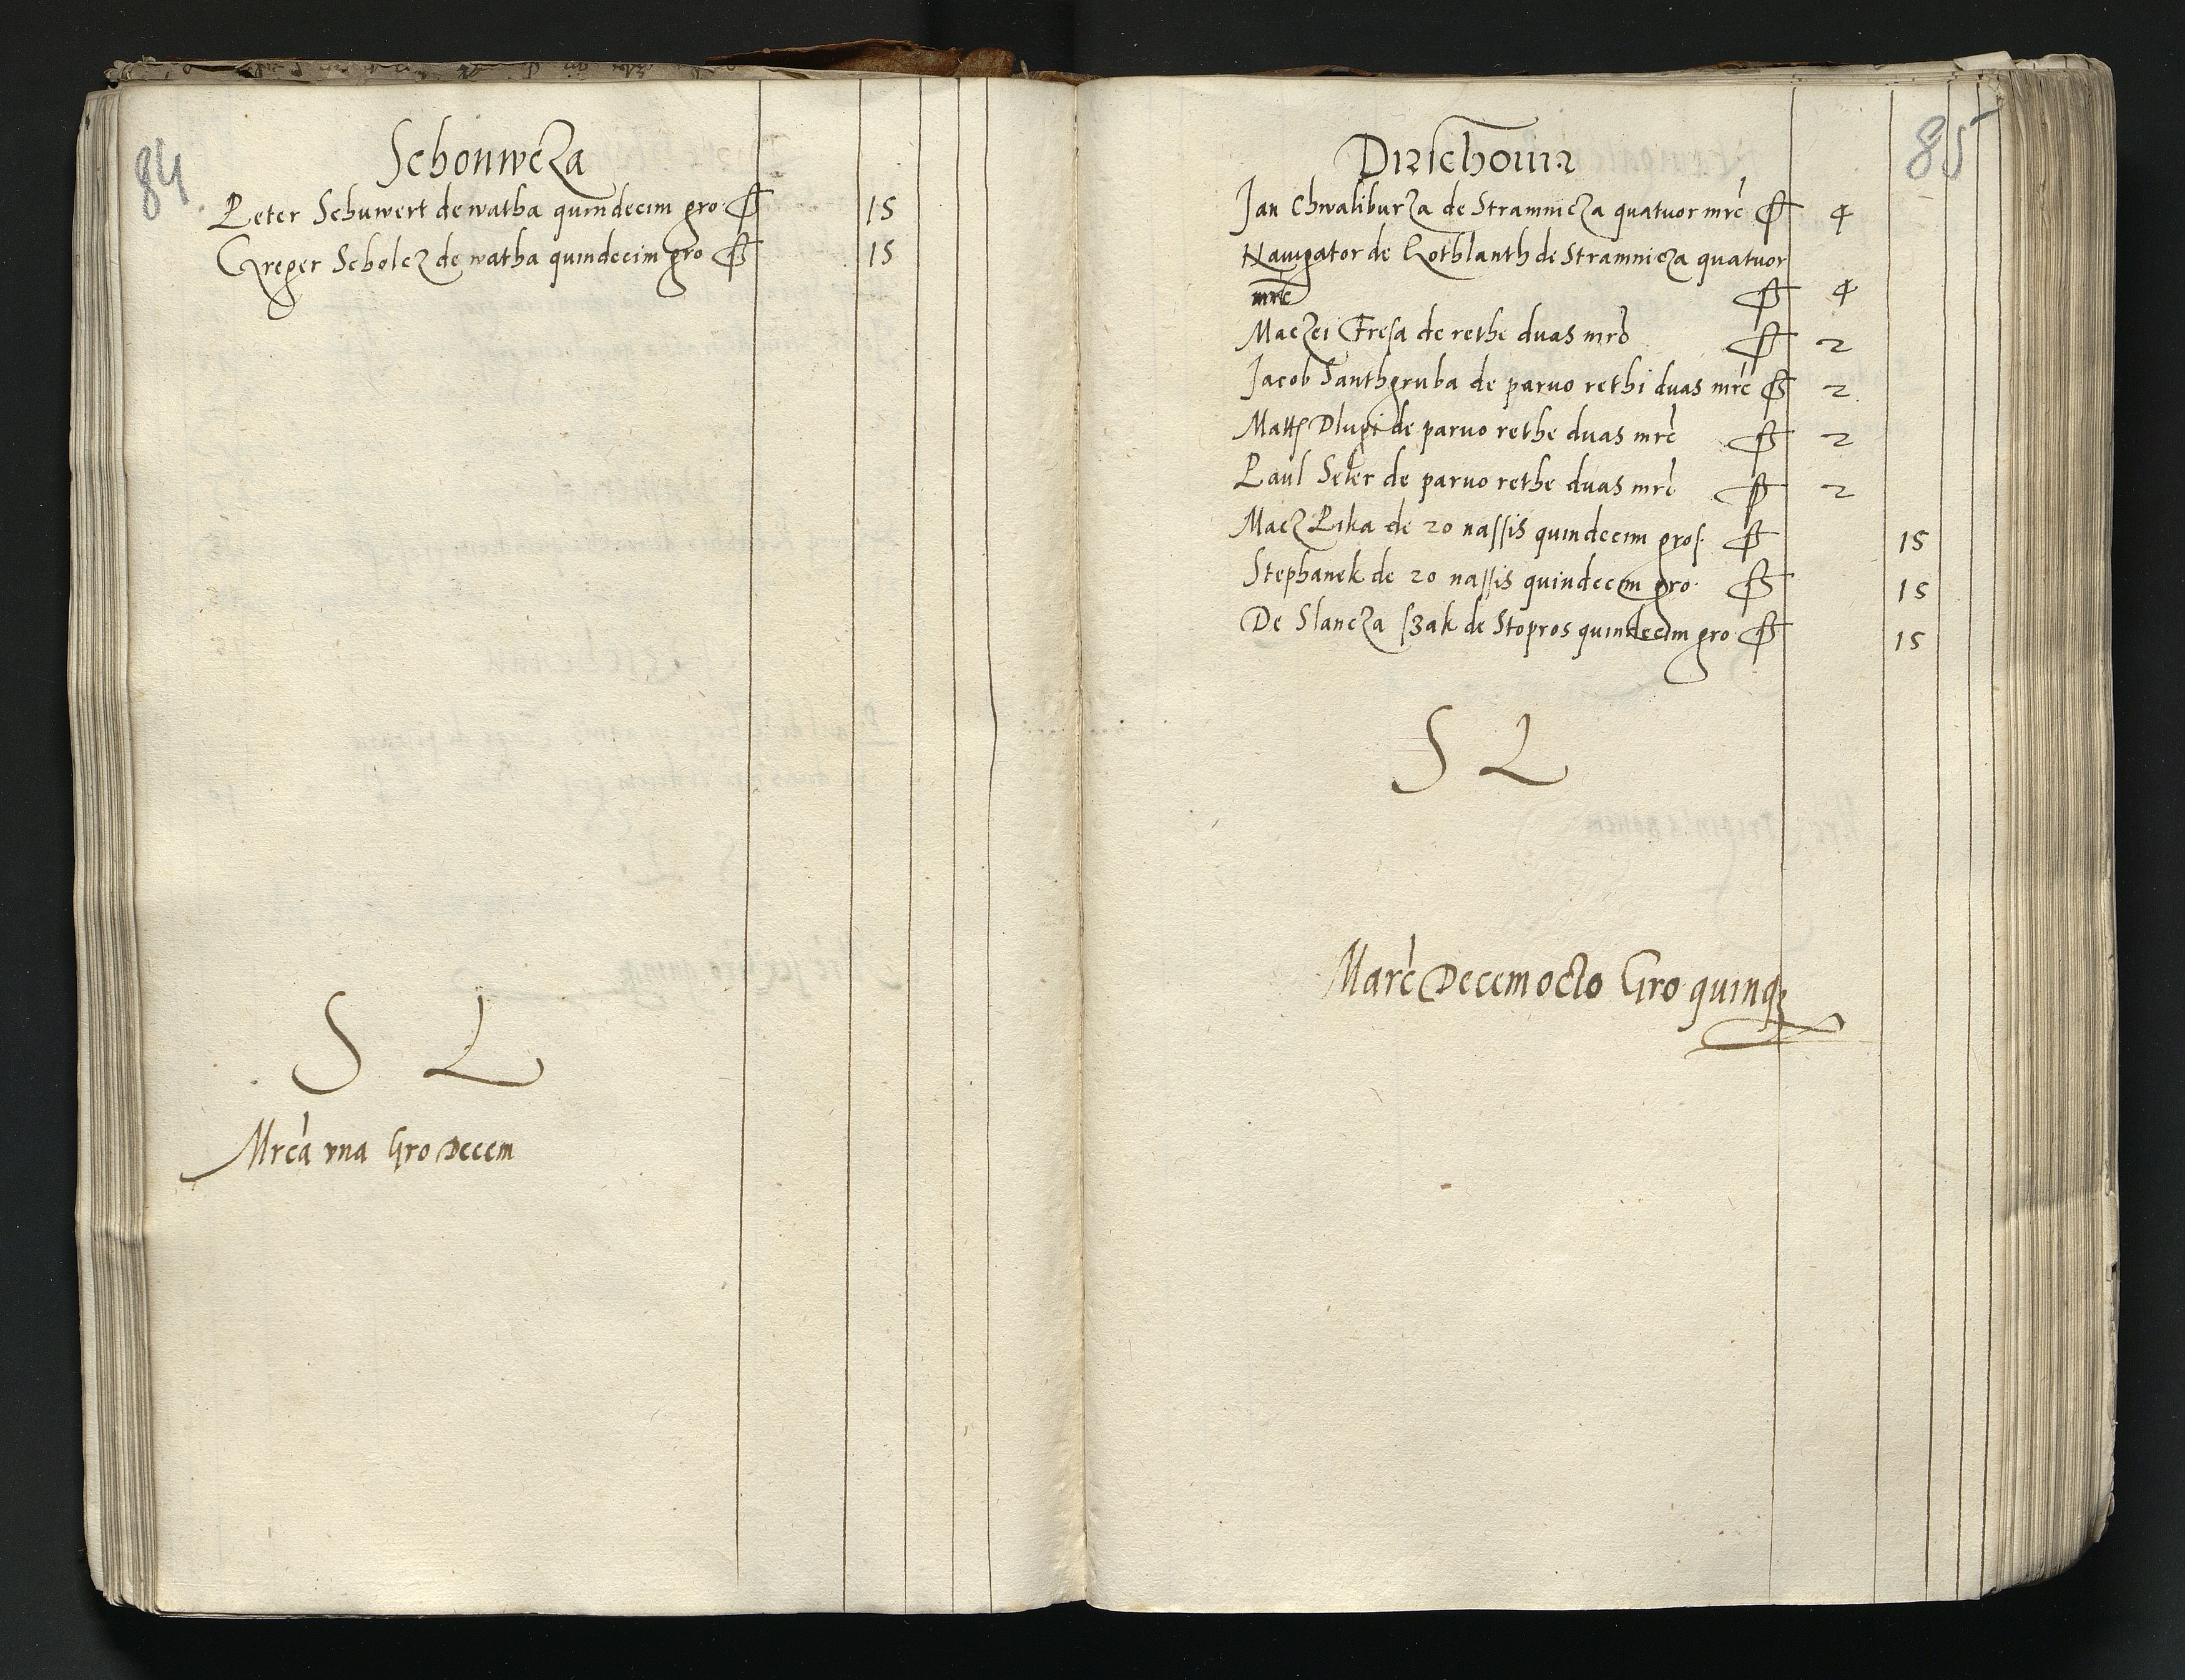 84
Schonwcza
Peter Schuwert de watha quindecim gro 15
Greger Scholcz de watha quindecim gro 15
S L
Mrca vna Gro Decem
85
Dirschouia
Jan Chwaliburza de Stramnicza quatuor mrc 4
Nauigator de Rotblanth de Stramnicza quatuor
mrc 4
Maczei Fresa de rethe duas mrc 2
Jacob Santhgruba de paruo rethi duas mrc 2
Matth Dlugi de paruo rethe duas mrc 2
Paul Seler de paruo rethe duas mrc 2
Macz Pika de 20 nassis quindecim gros 15
Stephanek de 20 nassis quindecim gro 15
De Slancza szak de Stopros quindecim gro 15
S L
Marc Decem octo Gro quinq